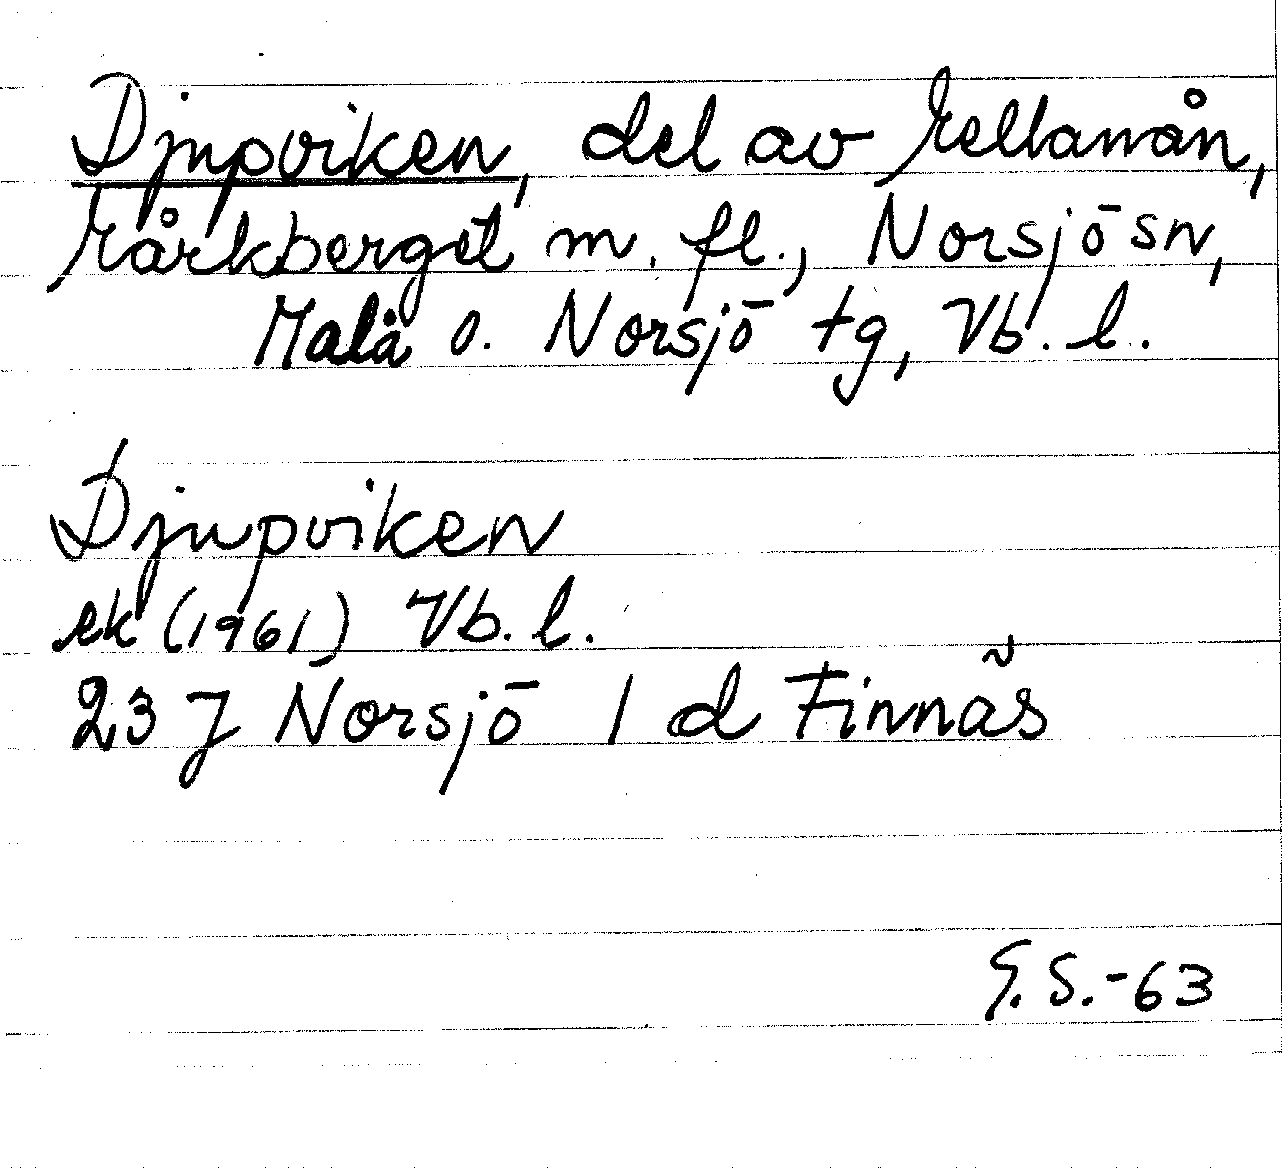 Djupviken, del av Mellanån,
Mårkberget m. fl., Norsjö sn,
Malå o. Norsjö tg, Vb. l.
Djupviken
ek (1961) Vb. l.
23 J Norsjö 1 d Finnäs
G. S.-63